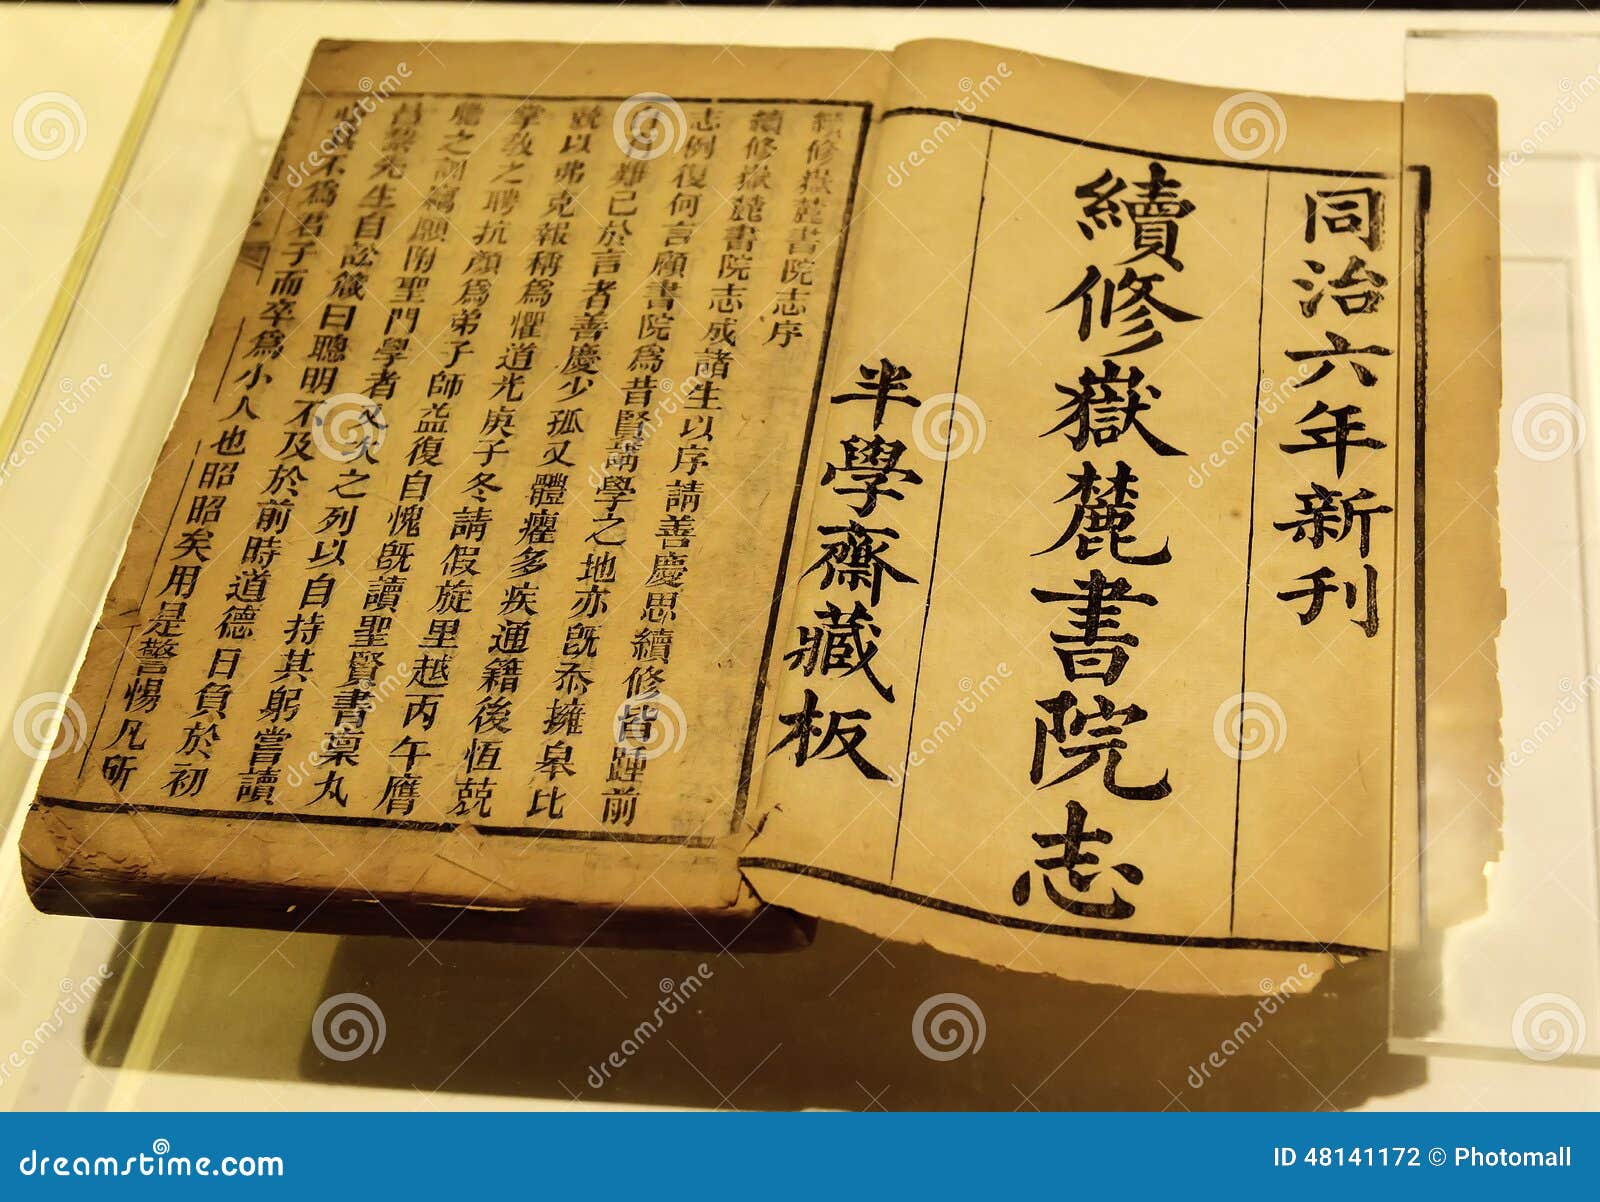 同治六年新刊
續修嶽麓書院志
半學齋藏板
續修嶽麓書院志序
續修嶽麓書院志成諸生以序請善慶思續修皆踵前
志例復何言顧書院為昔賢講學之地亦既忝擁皋比
自有難已於言者善慶少孤又體癯多疾通籍後恆兢
兢以弗克報稱為懼道光庚子冬請假旋里越丙午膺
掌教之聘抗顏為弟子師益復自愧既讀聖賢書稟丸
熊之訓竊願附聖門學者又次之列以自持其躬嘗讀
昌黎先生自訟箴曰聰明不及於前時道德日負於初
心其不為君子而卒為小人也昭昭矣用是警惕凡所
dreamstime
dreamstime.com
ID 48141172 © Photomall